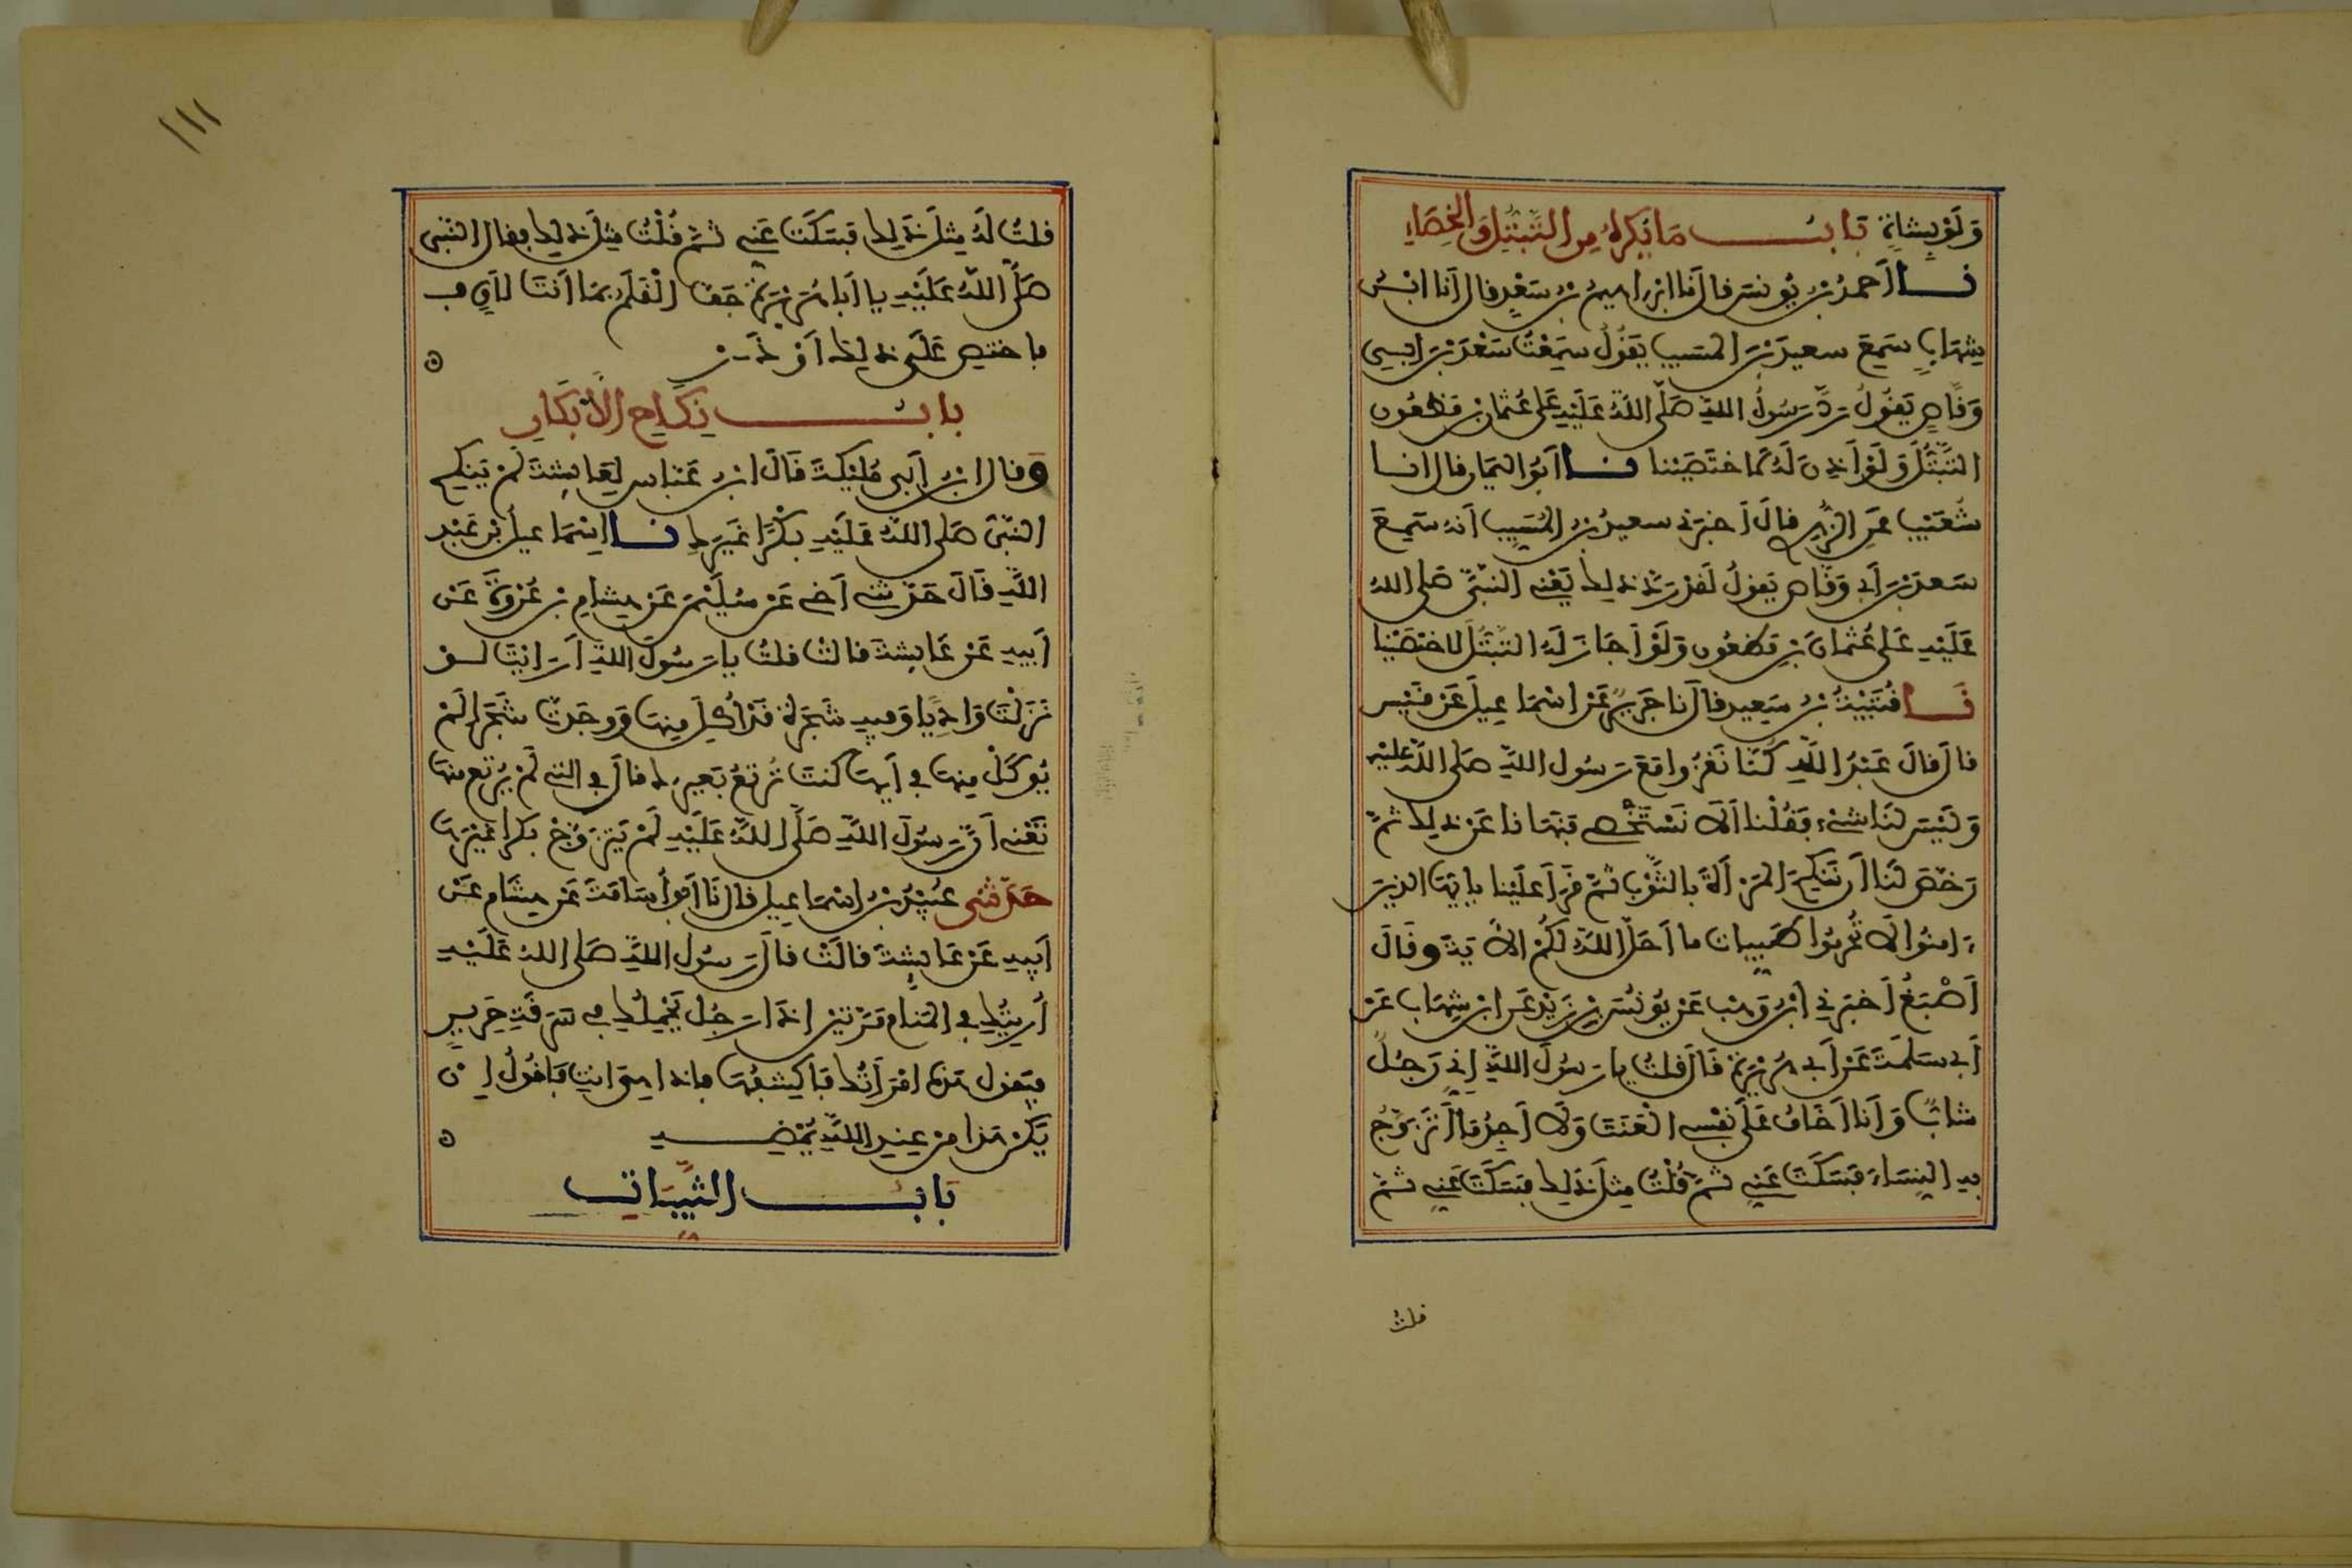 وَلَوْ بِشَاةٍ بَابُ مَا يُكْرَهُ مِنَ التَّبَتُّلِ وَالْخِصَاءِ
نا أَحمدُ بنُ يُونسَ قال أنا إبراهيمُ بنُ سَعْدٍ قال أنا ابنُ
شِهَابٍ سَمِعَ سعيدَ بْنَ المسَيبِ يَقُولُ سَمِعْتُ سَعْدَ بْنَ أَبِي
وَقَّاصٍ يَقُولُ رَدَّ رَسُولُ اللهِ صَلَّى اللهُ عَلَيْهِ عَلَى عُثْمَانَ بْنِ مَظْعُونٍ
التَّبَتُّلَ وَلَوْ أَذِنَ لَهُ لَاخْتَصَيْنَا نا أَبُو اليَمَانِ قال انا
شُعَيْبٌ عَنِ الزُّهْرِي قَالَ أَخبَرَنِي سعيدُ بْنُ المُسَيِّبِ أنه سَمِعَ
سَعدَ بْنَ أَبِي وَقَّاصٍ يَقولُ لَقَدْ رَدَّ ذَلِكَ يَعْنِي النَّبِيَّ صَلى اللهُ
عَلَيْهِ عَلَى عُثْمَانَ بْنِ مَظْعُونٍ وَلَوْ أَجَازَ لَهُ التَّبَتُّلَ لَاخْتَصَيْنَا
نَا قُتَيْبَةُ بْنُ سَعِيدٍ قال نا جَرِيرٌ عَنْ إسْمَاعِيلَ عَنْ قَيْسٍ
قالَ قالَ عَبْدُ اللهِ كُنَّا نَغْزُوا مَعَ رَسُولِ اللهِ صَلى اللهُ عليْهِ
وَلَيْسَ لَنَا شَيْءٌ فَقُلْنَا أَلَا نَسْتَخْصِي فَنَهَانَا عَنْ ذَلِكَ ثُمَّ
رَخَّصَ لَنَا أَن نَنْكِحَ المَرْأَةَ بالثَّوْبِ ثُمَّ قَرَأَ عَلَيْنَا يايُّهَا الذِينَ
ءَامنُوا لَا تُحَرِّمُوا طَيِّبَاتِ مَا أَحَلَّ اللهُ لَكُمْ الأيَةَ وقَالَ
أَصْبَغُ أَخبَرَنِي ابْنُ وَهْبٍ عَنْ يُونُسَ بْنِ يَزِيْدَ عَنِ ابْنِ شِهَابٍ عَنْ
أَبِي سَلَمَةَ عَنْ أَبِي هُرَيْرَةَ قَالَ قلتُ يا رَسُولَ اللهِ إنِّي رَجُلٌ
شَابٌّ وَأَنَا أَخَافُ عَلَى نَفْسِي الْعَنَتَ وَلَا أَجِدُ مَا أَتَزَوَّجُ
بِهِ النِّسَاءَ فَسَكَتَ عَنِّي ثُمَّ قُلْتُ مِثْلَ ذَلِكَ فسَكَتَ عَنِّي ثُمَّ
قلتُ
١١١
قلتُ لَهُ مِثْلَ ذَلِكَ فَسَكَتَ عَنِّي ثُمَّ قُلْتُ مِثْلَ ذَلِكَ فقال النَّبِي
صَلَّى اللهُ عَلَيْهِ يا أَبَا هُرَيْرَةَ جَفَّ الْقَلَمُ بِمَا أَنْتَ لَاقٍ ف
فاختصِ عَلَى ذَلِكَ أَوْ ذَرْ
بَابُ نِكَاحِ الْأَبْكَارِ
وَقال ابنُ أَبِي مُلَيْكَةَ قَالَ ابنُ عَبَّاسٍ لِعَائِشَةَ لَمْ يَنْكِحِ
النَّبِيُّ صَلى اللهُ عَلَيْهِ بِكْرًا غَيْرَكِ نا إِسْمَاعيلُ بْنُ عَبْدِ
اللهِ قَالَ حَدَّثَنِي أَخِي عَنْ سُلَيْمَنَ عَنْ هِشَامِ بْنِ عُرْوَةَ عَنْ
أَبِيهِ عَنْ عَائِشَةَ قالتْ قلتُ يا رَسُولَ اللهِ أَرَايْتَ لَوْ
نَزَلْتَ وَادِيًا وَفِيهِ شَجَرَةٌ قَدْ أُكِلَ مِنهَا وَوَجَدْتَ شَجَرًا لَمْ
يُوكَلْ مِنهَا فِي أَيِّهَا كنتَ تُرْتِعُ بَعِيرَكَ قالَ فِي التِي لَمْ يُرْتَعْ مِنهَا
تَعْنِي أَنَّ رَسُولَ اللهِ صَلَّى اللهُ عَلَيْهِ لَمْ يَتَزَوَّجْ بِكرًا غَيْرَهَا
حَدَّثَنِي عُبَيْدُ بْنُ إسْمَاعِيلَ قال نَا أَبو أُسَامَةَ عَنْ هِشَامٍ عَنْ
أَبِيهِ عَنْ عَائِشَةَ قالَتْ قالَ رَسُولُ اللهِ صَلى اللهُ عَلَيْهِ
أُرِيتُكِ فِي المَنَامِ مَرَّتَيْنِ إذَا رَجُلٌ يَحْمِلُكِ فِي سَرَقَةِ حَرِيرٍ
فيَقول هَذِهِ امْرَأَتُكَ فَأَكْشِفُهَا فإذَا هِيَ أَنْتِ فَأَقُولُ إِنْ
يَكُنْ هَذَا مِنْ عِنْدِ اللهِ يُمْضِهِ
بَابُ الثَّيِّبَاتِ